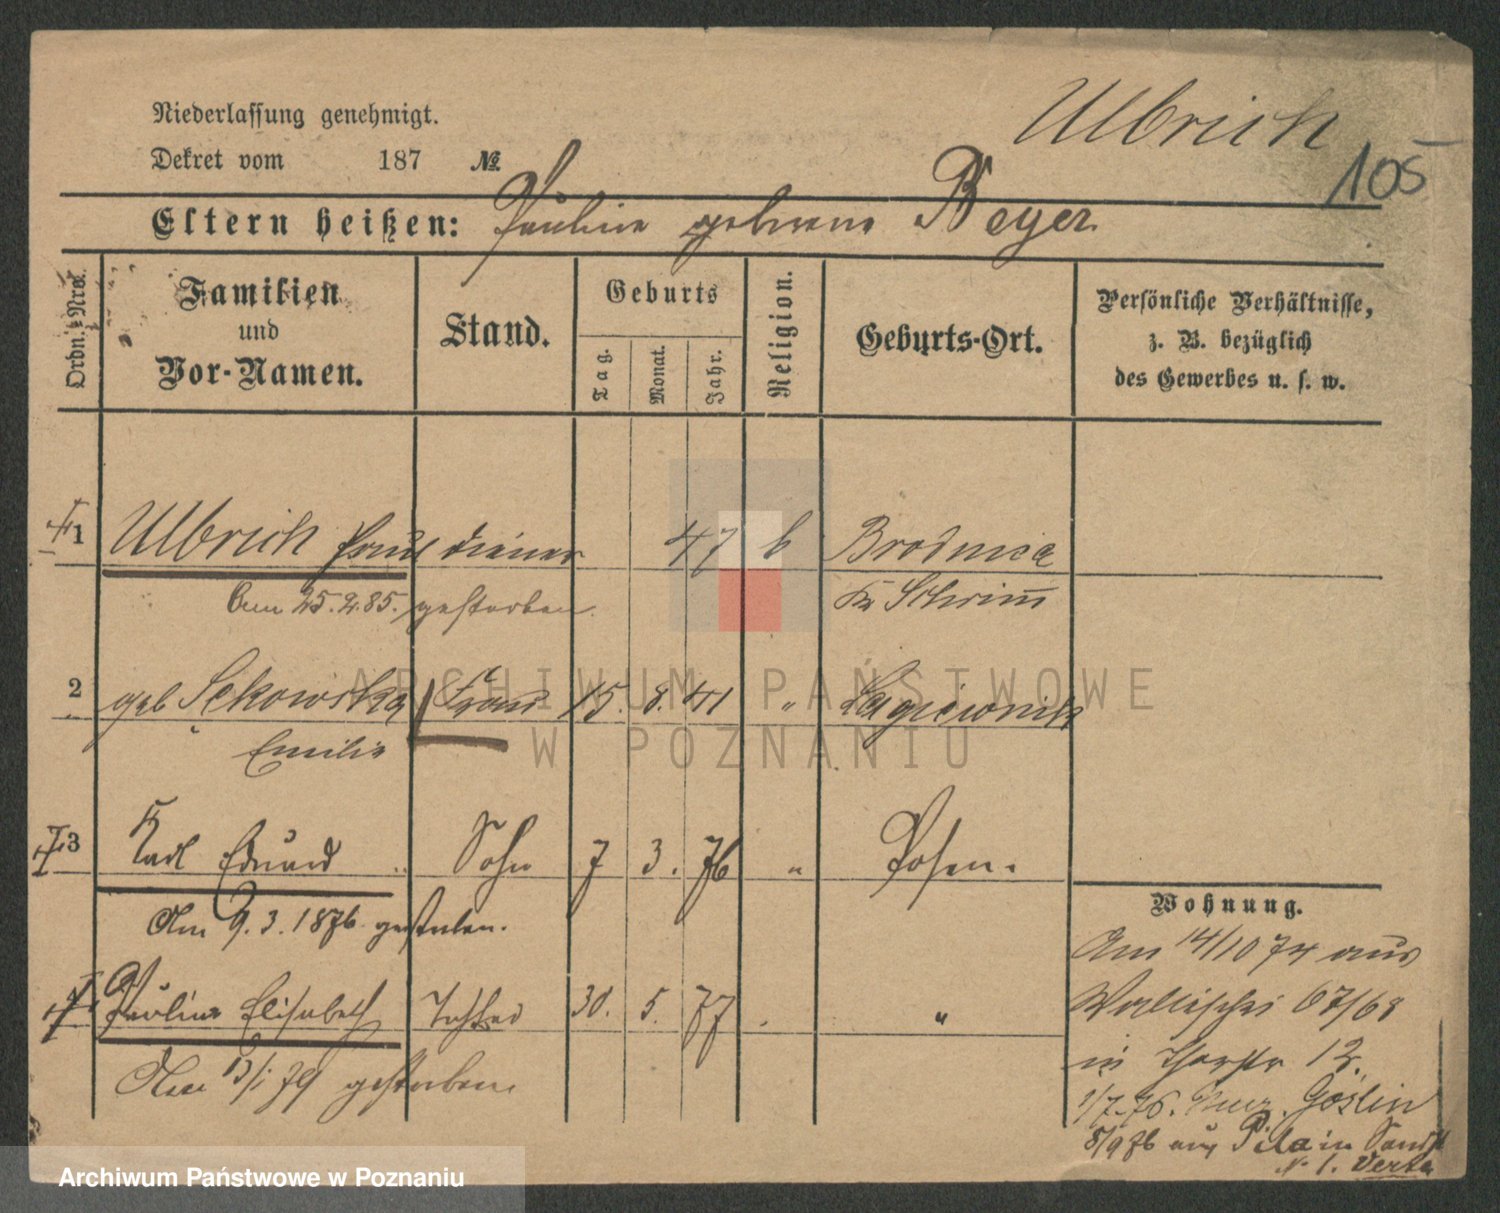 Niederlassung genehmigt.
Dekret vom 187 №
Ulbrich
105
Eltern heißen: Pauline geborene Beyer
Ordn.-Nro.
Familien
und
Vor-Namen.
Stand.
Geburts
Tag.
Monat.
Jahr.
Religion.
Geburts-Ort.
Persönliche Verhältnisse,
z. B. bezüglich
des Gewerbes u. s. w.
1 Ulbrich Paul Diener 47 k Brodnica
Am 25.2.85. gestorben. Kr Schrimm
2 geb Sekowska Frau 15. 8. 41 " Lagiewnik
Emilie
3 Karl Eduard Sohn 7 3. 76 " Posen.
Am 9.3.1876 gestorben.
4 Pauline Elisabeth Tochter 30. 5. 77 "
Am 13/1 79 gestorben.
Wohnung.
Am 14/10 74 aus
Wallischei 67/68
in 12.
1/7.76. Goslin
8/9 76 aus Pila in Sandstr
N 1. Verte
ARCHIWUM PAŃSTWOWE
W POZNANIU
Archiwum Państwowe w Poznaniu